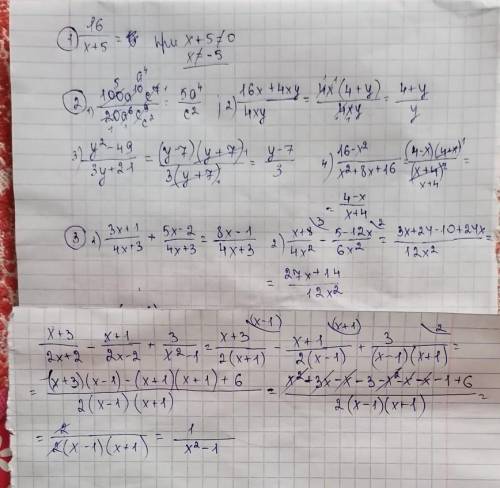 ① 16/(x+5) = при x+5≠0
x≠-5
② 1) 100a¹⁰c⁷/20a⁶c⁹ = 5a⁴/c² ; 2) (16x+4xy)/4xy = 4x(4+y)/4xy = (4+y)/y
3) (y²-49)/(3y+21) = (y-7)(y+7)/3(y+7) = (y-7)/3 4) (16-x²)/(x²+8x+16) = (4-x)(4+x)/(x+4)² =
= (4-x)/(x+4)
③ 1) (3x+1)/(4x+3) + (5x-2)/(4x+3) = (8x-1)/(4x+3) 2) (x+8)/4x² - (5-12x)/6x² = (3x+24-10+24x)/12x² =
= (27x+14)/12x²
(x+3)/(2x+2) - (x+1)/(2x-2) + 3/(x²-1) = (x+3)/2(x+1) - (x+1)/2(x-1) + 3/(x-1)(x+1) =
= ((x+3)(x-1)-(x+1)(x+1)+6)/2(x-1)(x+1) = (x²+3x-x-3-x²-x-x-1+6)/2(x-1)(x+1) =
= 2/2(x-1)(x+1) = 1/(x²-1)